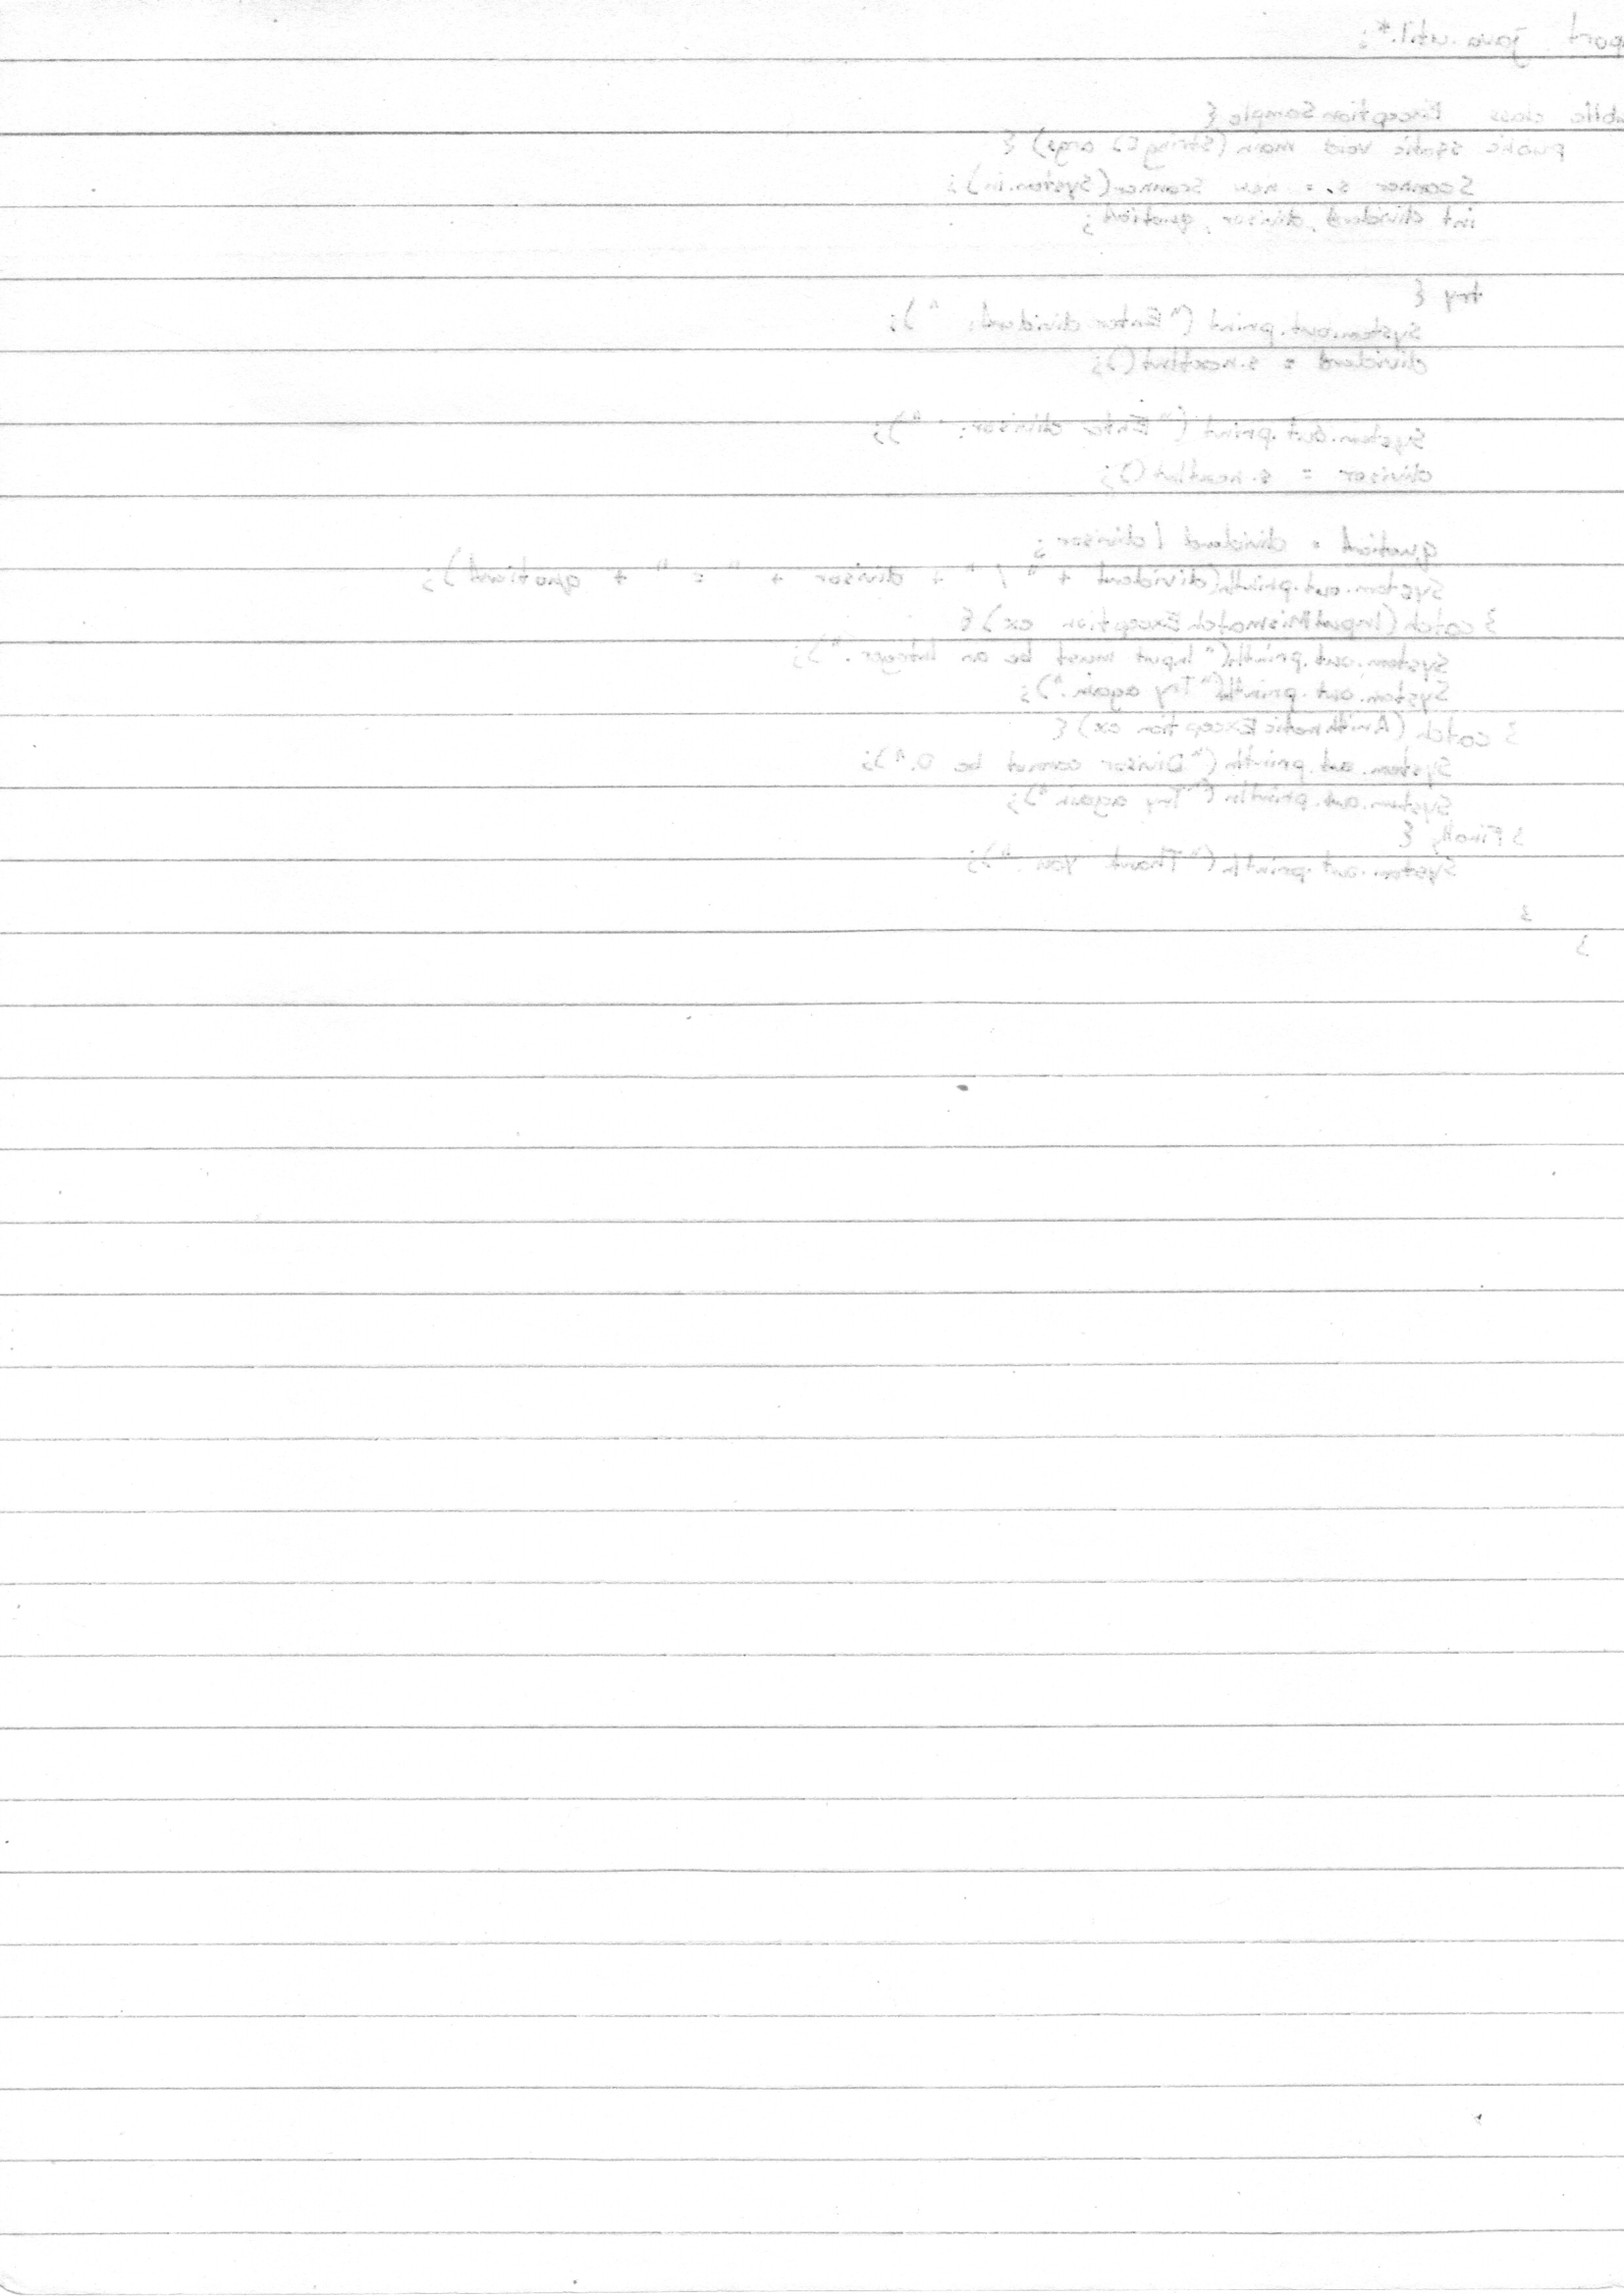 port java.util.*;
ublic class ExceptionSample {
public static void main (String [] args) {
Scanner s = new Scanner (System.in);
int dividend, divisor, quotient;
try {
System.out.print ("Enter dividend: ");
dividend = s.nextInt();
System.out.print ("Enter divisor: ");
divisor = s.nextInt();
quotient = dividend / divisor;
System.out.println(dividend + " / " + divisor + " = " + quotient);
} catch (InputMismatchException ex) {
System.out.println("Input must be an integer.");
System.out.println("Try again.");
} catch (ArithmeticException ex) {
System.out.println ("Divisor cannot be 0.");
System.out.println ("Try again.");
} Finally {
System.out.println ("Thank you.");
}
}